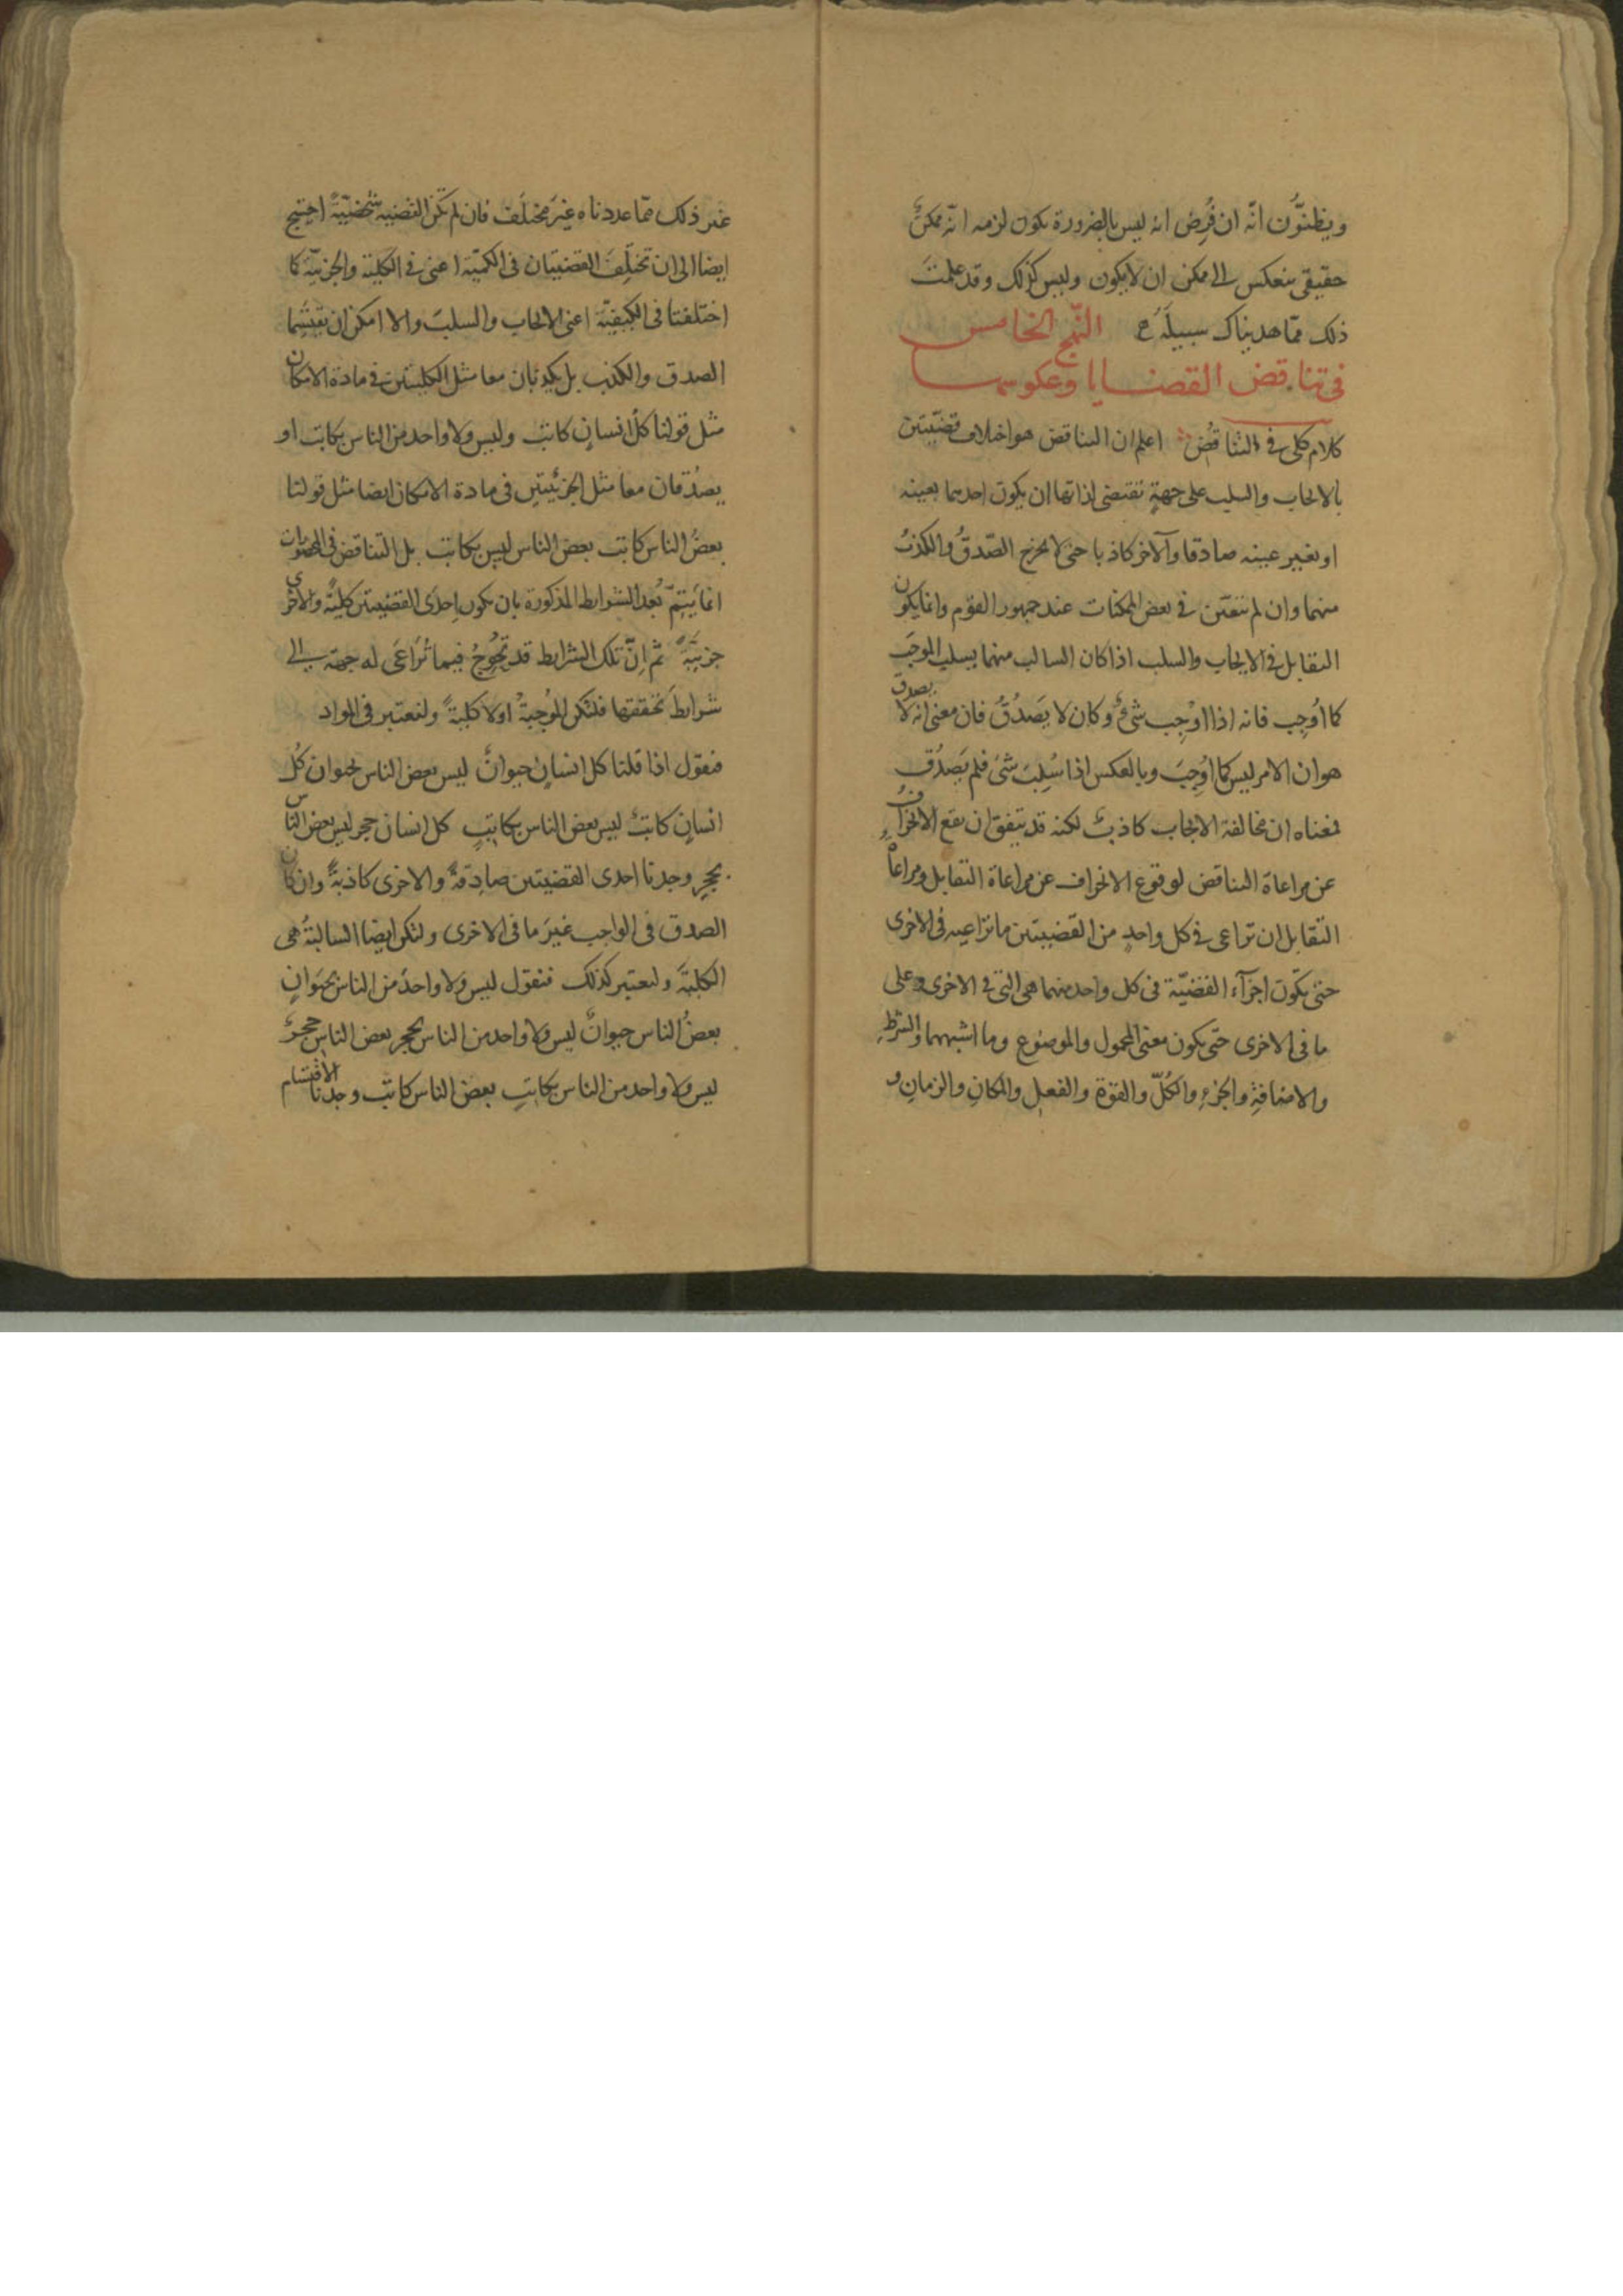 ويظنّون انّه ان فُرِض انه ليس بالضرورة يكون لزمه انّه ممكنٌ
حقيقي ينعكس الى ممكن ان لا يكون وليس كذلك وقد علمتَ
ذلك ممّا هديناك سبيلَه النّهج الخامس
في تناقض القضايا وعكوسها
كلام كلى في التناقُض اعلم ان التناقض هو اختلاف قضيّتين
بالايجاب والسلب على جهةٍ تقتضى لذاتها ان يكون احديهما بعينه
او بغير عينه صادقا والآخر كاذبا حتى لا يخرج الصّدقُ والكذبُ
منهما وان لم يتعيّن في بعض الممكنات عند جمهور القوم وانما يكون
التقابل في الايجاب والسلب اذا كان السالب منهما يسلب الموجَب
كما اُوجِب فانه اذا اُوْجِب شئٌ وكان لا يَصدُقُ فان معنى انه لا يصدق
هو ان الامر ليس كما اُوجِبَ وبالعكس اذا سُلِبَ شئ فلم يَصدُق
فمعناه ان مخالفة الايجاب كاذبٌ لكنه قد يتفق ان يقع الانحرافُ
عن مراعاة التناقض لوقوع الانحراف عن مراعاة التقابل ومراعاةُ
التقابل ان تراعى في كل واحدٍ من القضيتين ما تراعيه في الاخرى
حتى يكون اجزآء القضيّة في كل واحد منهما هي التى في الاخرى وعلى
ما في الاخرى حتى يكون معنى المحمول والموضوع وما اشبههما والشرطِ
والاضافةِ والجزءِ والكُلّ والقوّة والفعل والمكانِ والزمانِ و
غير ذلك ممّا عددناه غيرَ مختلَف فان لم تكن القضيه شخصّيةً احتيج
ايضا الى ان تختلِفَ القضيتان في الكميّة اعنى في الكلية والجزئيّة كما
اختلفتا في الكيفيّة اعنى الايجاب والسلب والا امكن ان تقتسما
الصدق والكذب بل يكذبان معا مثل الكليتين في مادة الامكان
مثل قولنا كلُ انسانٍ كاتبٌ وليس ولا واحد من الناس بكاتب او
يصدُقان معا مثل الجزئيتين في مادة الامكان ايضا مثل قولنا
بعضُ الناس كاتب بعض الناس ليس بكاتب بل التناقض في المحصورات
انما يَتِمّ بعد الشرايط المذكورة بان يكون اِحدَى القضيتين كليةً والاخرى
جزئيّةً ثم اِنّ تلك الشرايط قد تُحْوِجُ فيما تُرَاعَى له جهة الى
شرايطَ تحققها فلتكن المُوجِبةُ اولا كليةً ولنعتبر في المواد
فنقول اذا قلنا كل انسانٍ حيوانٌ ليس بعض الناس بحيوان كلُ
انسانٍ كاتبٌ ليس بعض الناس بكاتبٍ كل انسان حجر ليس بعض الناس
بحجرٍ وجدنا احدى القضيتين صادِقةً والاخرى كاذبةً وان كان
الصدق في الواجب غيرَ ما في الاخرى ولتكن ايضا السالبةُ هى
الكليّة ولنعتبر كذلك فنقول ليس ولا واحدٌ من الناس بحيَوانٍ
بعضُ الناس حيوانٌ ليس ولا واحد من الناس بحجر بعض الناس حجرٌ
ليس ولا واحد من الناس بكاتبٍ بعض الناس كاتب وجدنا الاقتسام